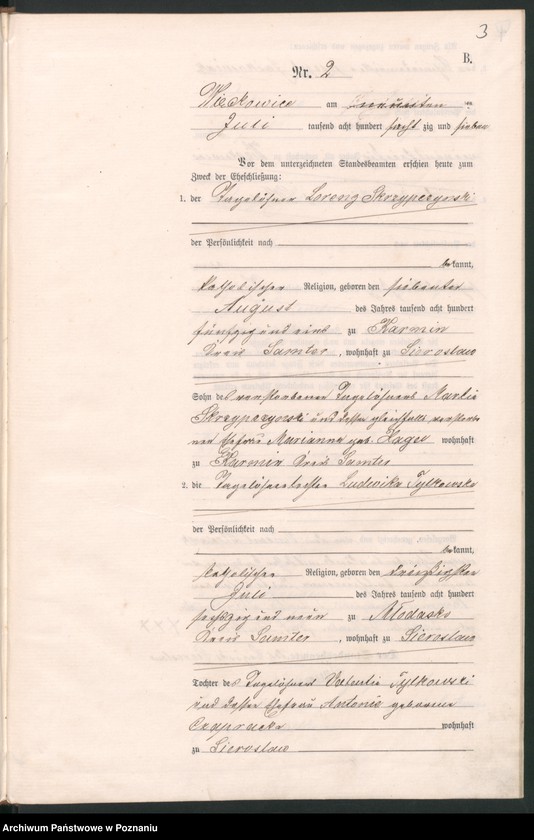 3
B.
Nr. 2
Wieckowice am ten
Juli tausend acht hundert acht zig und sieben
Vor dem unterzeichneten Standesbeamten erschien heute zum
Zweck der Eheschließung:
1. der Tagelöhner Lorenz Skrzypczynski
der Persönlichkeit nach
bekannt,
katholischer Religion, geboren den siebenten
August des Jahres tausend acht hundert
fünfzig und eins zu Karmin
Kreis Samter, wohnhaft zu Sieroslaw
Sohn des verstorbenen Tagelöhners Martin
Skrzypczynski und dessen gleichfalls verstorbe
nen Ehefrau Marianna geb. wohnhaft
zu Karmin Kreis Samter
2. die Tagelöhnertochter Ludwika Tylkowska
der Persönlichkeit nach
bekannt,
katholischer Religion, geboren den dreißigsten
Juli des Jahres tausend acht hundert
sechszig und neun zu Mlodasko
Kreis Samter, wohnhaft zu Sieroslaw
Tochter des Tagelöhners Valentin Tylkowski
und dessen Ehefrau Antonie geborene
wohnhaft
zu Sieroslaw
Archiwum Państwowe w Poznaniu